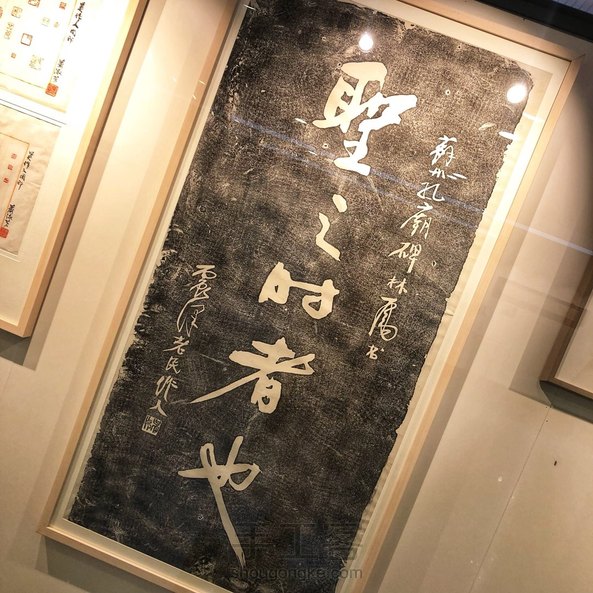 蘇州孔廟碑林属书
聖之时者也
震泽老民作人
手工客
shougongke.com